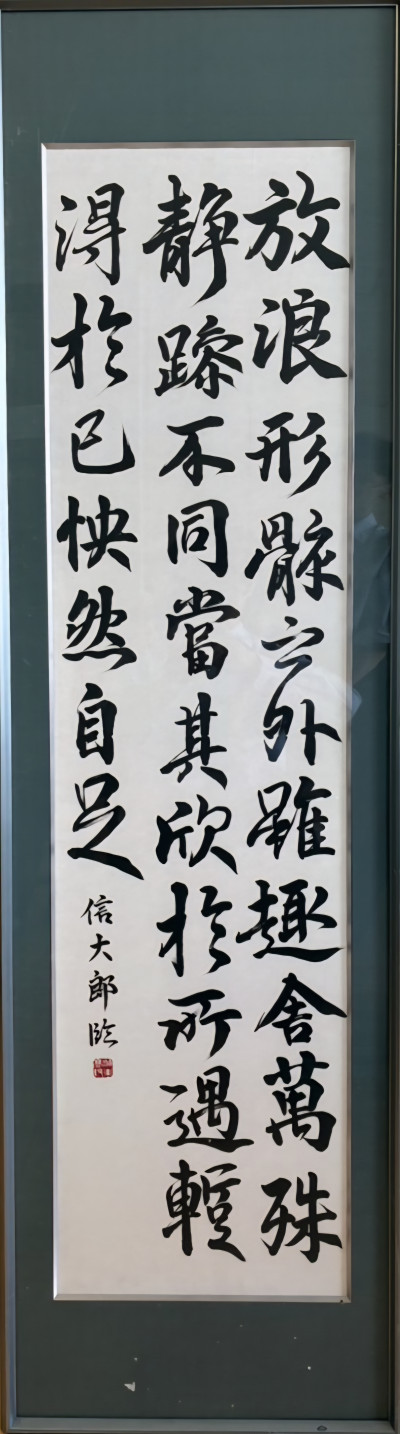 放浪形骸之外雖趣舎萬殊
静躁不同當其欣於所遇蹔
得於己怏然自足
信大郎臨